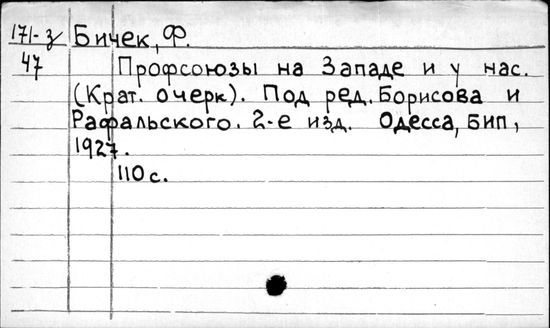 171-з Бичек, Ф.
47 Профсоюзы на Западе и у нас.
(Крат. очерк). Под ред. Борисова и
Рафальского. 2-е изд. Одесса, БИП,
1927.
110 с.